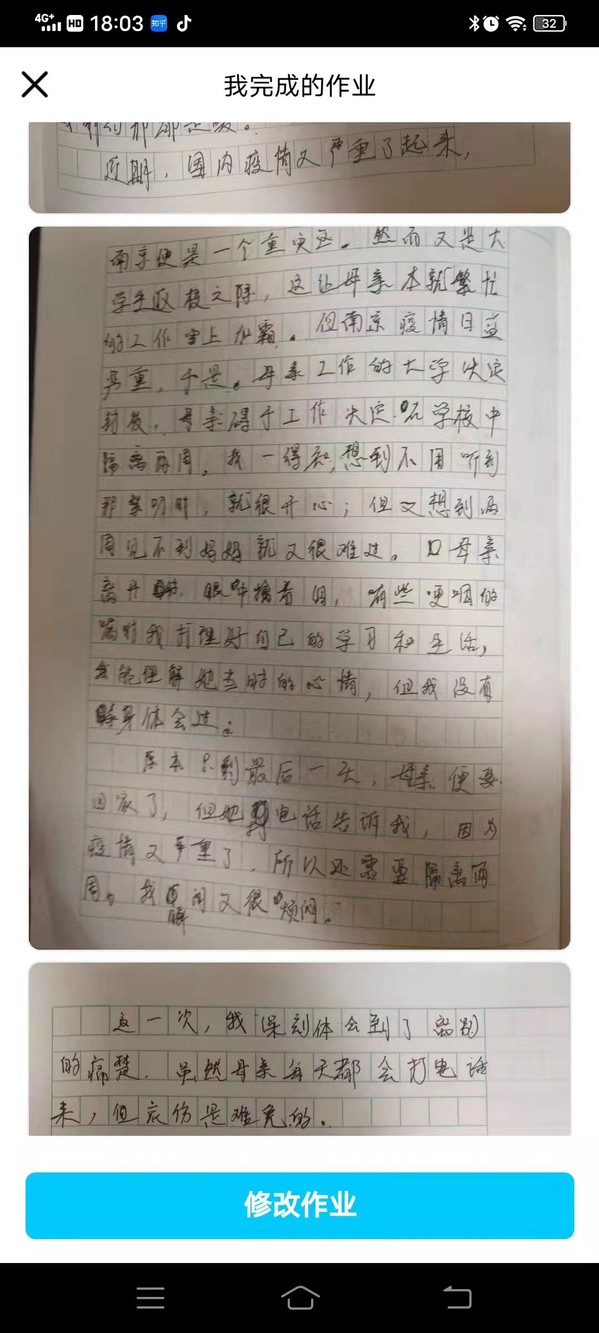 4G+ HD 18:03 知乎 32
我完成的作业
近期，国内疫情又严重了起来，
南京便是一个重灾区。然而又是大
学生返校之际，这让母亲本就繁忙
的工作雪上加霜。但南京疫情日益
严重，于是。母亲工作的大学决定
封校。母亲碍于工作决定在学校中
隔离两周。我一得知，想到不用听到
那 时，就很开心；但又想到两
周见不到妈妈就又很难过。 母亲
离开 眼中擒着泪，有些哽咽的
嘱咐我打理好自己的学习和生活，
我能理解她当时的心情，但我没有
身体会过。
原本只剩最后一天，母亲便要
回家了，但她打电话告诉我，因为
疫情又严重了，所以还需要隔离两
周。我 又很烦闷。
这一次，我深刻体会到了离别
的痛楚。虽然母亲每天都会打电话
来，但哀伤是难免的。
修改作业